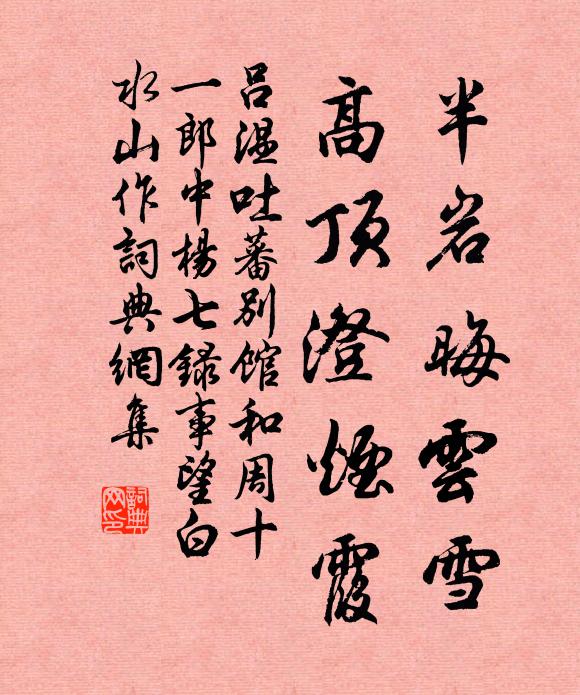 半岩晦雲雪
高頂澄煙霞
呂温吐蕃別館和周十
一郎中楊七録事望白
水山作詞典網集
詞典網印